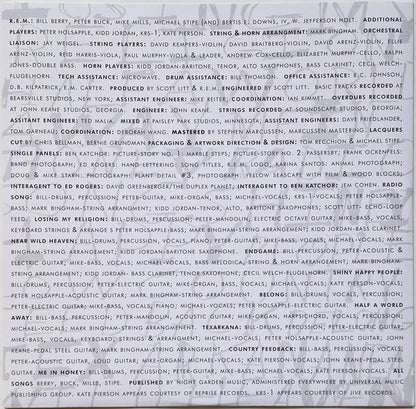 R.E.M.: BILL BERRY, PETER BUCK, MIKE MILLS, MICHAEL STIPE (AND) BERTIS E. DOWNS, IV, W. JEFFERSON HOLT. ADDITIONAL
PLAYERS: PETER HOLSAPPLE, KIDD JORDAN, KRS-1, KATE PIERSON. STRING & HORN ARRANGEMENT: MARK BINGHAM. ORCHESTRAL
LIAISON: JAY WEIGEL. STRING PLAYERS: DAVID KEMPERS-VIOLIN, DAVID BRAITBERG-VIOLIN, DAVID ARENZ-VIOLIN, ELLIE
ARENZ-VIOLIN, REID HARRIS-VIOLA, PAUL MURPHY-VIOLA & LEADER, ANDREW COX-CELLO, ELIZABETH MURPHY-CELLO, RALPH
JONES-DOUBLE BASS. HORN PLAYERS: KIDD JORDAN-BARITONE, TENOR, ALTO SAXOPHONES, BASS CLARINET; CECIL WELCH-
FLUGELHORN. TECH ASSISTANCE: MICROWAVE. DRUM ASSISTANCE: BILL THOMSON. OFFICE ASSISTANCE: B.C. JOHNSON,
D.B. KILPATRICK, E.M. CARTER. PRODUCED BY SCOTT LITT & R.E.M. ENGINEERED BY SCOTT LITT. BASIC TRACKS RECORDED AT
BEARSVILLE STUDIOS, NEW YORK, ASSISTANT ENGINEER: MIKE REITER; COORDINATION: IAN KIMMET. OVERDUBS RECORDED
AT JOHN KEANE STUDIOS, GEORGIA, ENGINEER: JOHN KEANE. STRINGS RECORDED AT SOUNDSCAPE STUDIOS, GEORGIA;
ASSISTANT ENGINEER: TED MALIA. MIXED AT PAISLEY PARK STUDIOS, MINNESOTA; ASSISTANT ENGINEERS: DAVE FRIEDLANDER,
TOM GARNEAU; COORDINATION: DEBORAH WANG. MASTERED BY STEPHEN MARCUSSEN, MARCUSSEN MASTERING. LACQUERS
CUT BY CHRIS BELLMAN, BERNIE GRUNDMAN PACKAGING & ARTWORK DIRECTION & DESIGN: TOM RECCHION & MICHAEL STIPE.
SINGLE PANELS: BEN KATCHOR: PICTURY STORY NO. 1: MARBLE STEPS; PICTURY-STORY NO. 2: PASSERBY; FRANK OCKENFELS:
BAND PHOTOGRAPH; ED ROGERS: HAND-LETTERING: SONG TITLES, R.E.M. LOGO; KARINA SANTOS: ANIMAL PHOTOGRAPH;
DOUG & MIKE STARN: PHOTOGRAPH: PLANT DETAIL #3, PHOTOGRAPH, YELLOW SEASCAPE WITH FILM & WOOD BLOCKS;
INTERAGENT TO ED ROGERS: DAVID GREENBERGER/THE DUPLEX PLANET; INTERAGENT TO BEN KATCHOR: JEM COHEN. RADIO
SONG: BILL-DRUMS, PERCUSSION; PETER-GUITAR; MIKE-ORGAN, BASS, VOCALS; MICHAEL-VOCALS; KRS-1-VOCALS; PETER HOLSAPPLE-
BASS; MARK BINGHAM-STRING ARRANGEMENT; KIDD JORDAN-TENOR, ALTO, BARITONE SAXOPHONES; SCOTT LITT- ECHO-LOOP
FEED. LOSING MY RELIGION: BILL-DRUMS, PERCUSSION; PETER-MANDOLIN, ELECTRIC GUITAR; MIKE-BASS, VOCALS,
KEYBOARD STRINGS & ARRANGE S PETER HOLSAPPLE-BASS; MARK BINGHAM-STRING ARRANGEMENT; KIDD JORDAN-BASS CLARINET.
NEAR WILD HEAVEN: BILL-DRUMS, PERCUSSION, VOCALS, PIANO; PETER-GUITARS; MIKE-BASS, VOCALS; MICHAEL-VOCALS; MARK
BINGHAM-STRING ARRANGEMENT; KIDD JORDAN-BARITONE SAXOPHONE. ENDGAME: BILL-PERCUSSION; PETER-ACOUSTIC &
ELECTRIC GUITAR; MIKE-BASS, VOCALS; MICHAEL-VOCALS, BASS MELODICA, STRING & HORN ARRANGEMENT; MARK BINGHAM-
STRING ARRANGEMENT; KIDD JORDAN- BASS CLARINET, TENOR SAXOPHONE; CECIL WELCH-FLUGELHORN. SHINY HAPPY PEOPLE:
BILL-DRUMS, PERCUSSION, VOCALS; PETER-ELECTRIC GUITAR; MIKE-ORGAN, BASS, VOCALS; MICHAEL-VOCALS; KATE PIERSON-VOCALS;
PETER HOLSAPPLE-ACOUSTIC GUITAR; MARK BINGHAM-STRING ARRANGEMENT. BELONG: BILL-DRUMS, VOCALS, PERCUSSION;
PETER-ELECTRIC GUITAR; MIKE-BASS, VOCALS, PIANO; MICHAEL-VOCALS; PETER HOLSAPPLE-ELECTRIC GUITAR. HALF A WORLD
AWAY: BILL-BASS, PERCUSSION; PETER-MANDOLIN, ACOUSTIC GUITAR; MIKE-ORGAN, HARPSICHORD, VOCALS, PERCUSSION;
MICHAEL-VOCALS; MARK BINGHAM-STRING ARRANGEMENT. TEXARKANA: BILL-DRUMS, PERCUSSION; PETER-ELECTRIC GUITAR;
MIKE-BASS, VOCALS, KEYBOARD, STRINGS & ARRANGEMENT; MICHAEL-VOCALS; PETER HOLSAPPLE-ACOUSTIC GUITAR; JOHN
KEANE-PEDAL STEEL GUITAR; MARK BINGHAM-STRING ARRANGEMENT. COUNTRY FEEDBACK: BILL-BASS, PERCUSSION, VOCALS;
PETER-ACOUSTIC GUITAR, LOUD GUITAR; MIKE-ORGAN; MICHAEL-VOCALS; KATE PIERSON-VOCALS; JOHN KEANE-PEDAL STEEL
GUITAR. ME IN HONEY: BILL-DRUMS; PETER-GUITAR; MIKE-BASS; MICHAEL-VOCALS; KATE PIERSON-VOCALS. ALL
SONGS BERRY, BUCK, MILLS, STIPE. PUBLISHED BY NIGHT GARDEN MUSIC, ADMINISTERED EVERYWHERE BY UNIVERSAL MUSIC
PUBLISHING GROUP. KATE PIERSON APPEARS COURTESY OF REPRISE RECORDS. KRS-1 APPEARS COURTESY OF JIVE RECORDS.